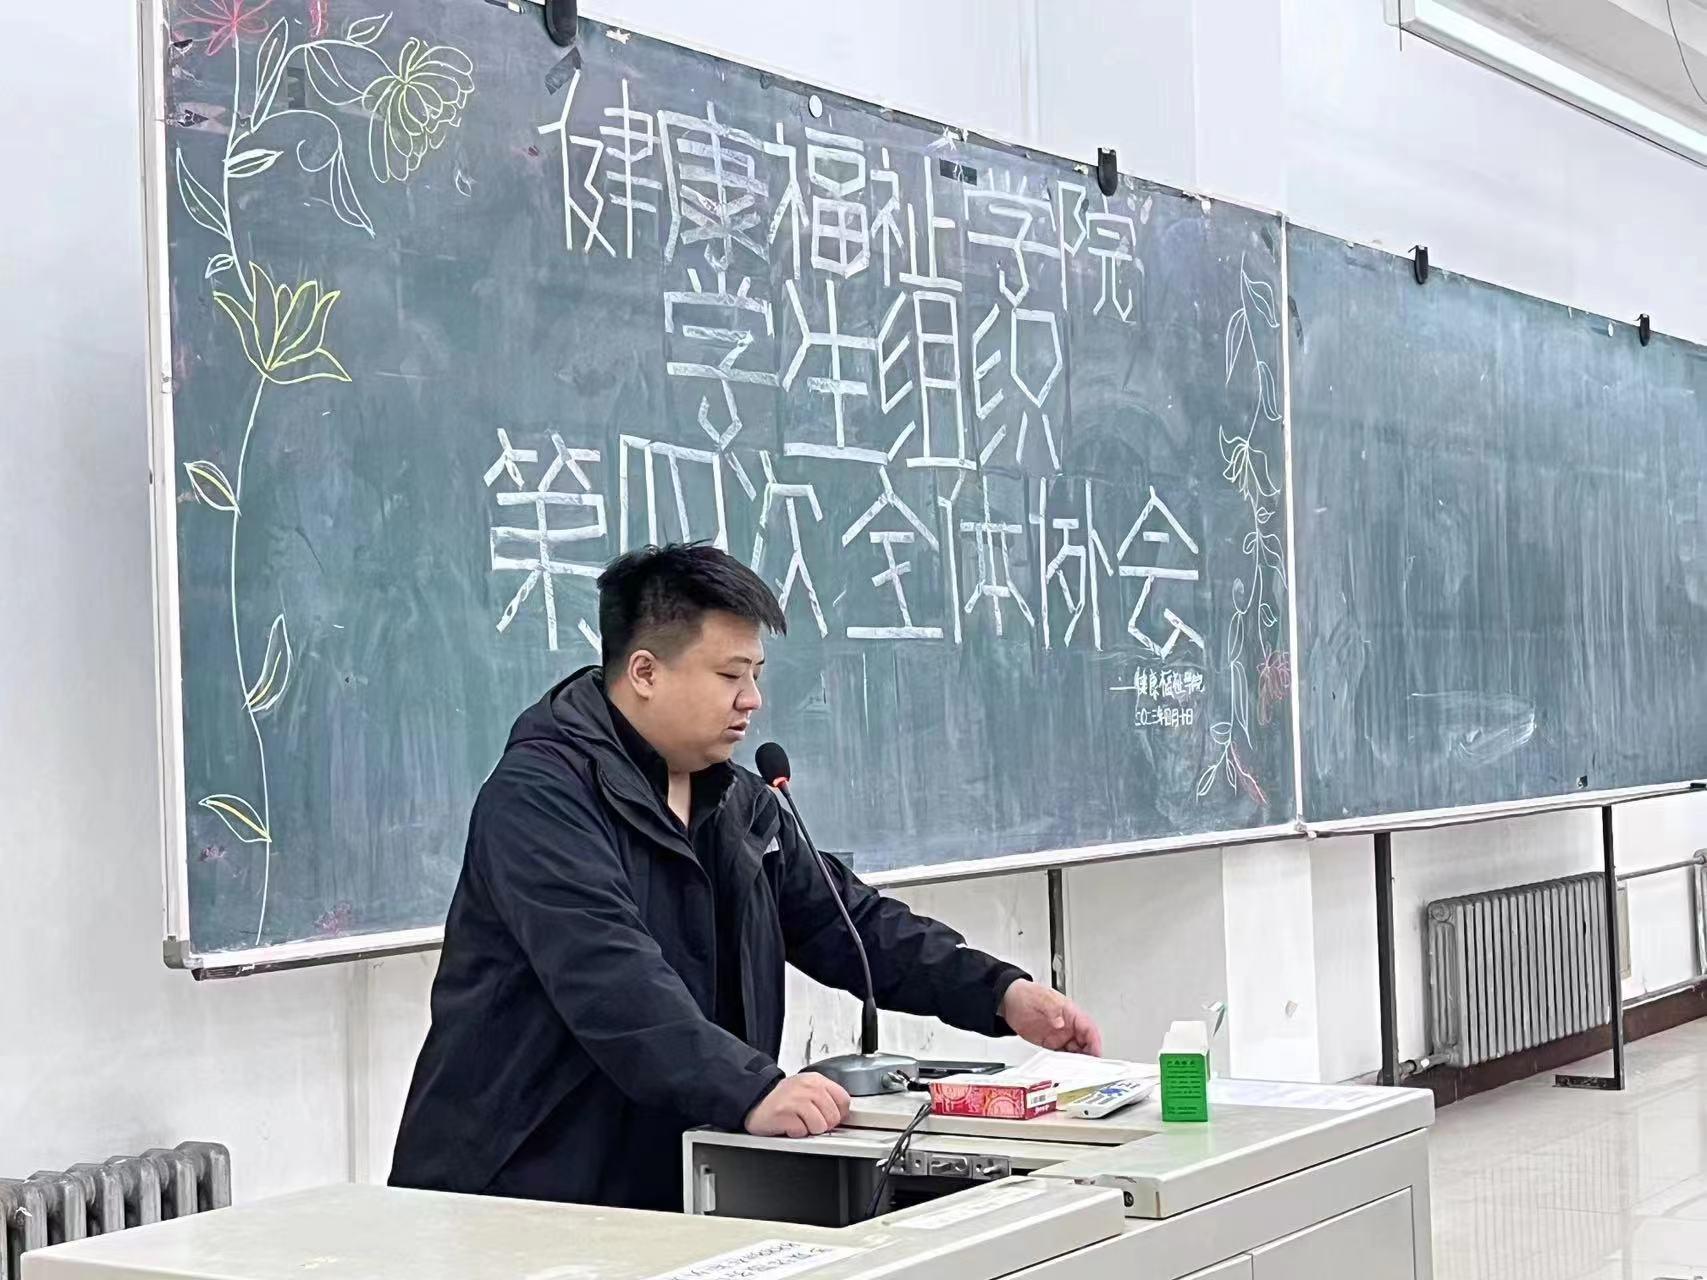 健康福祉学院
学生组织
第四次全体例会
——健康福祉学院
二〇二三年四月十日